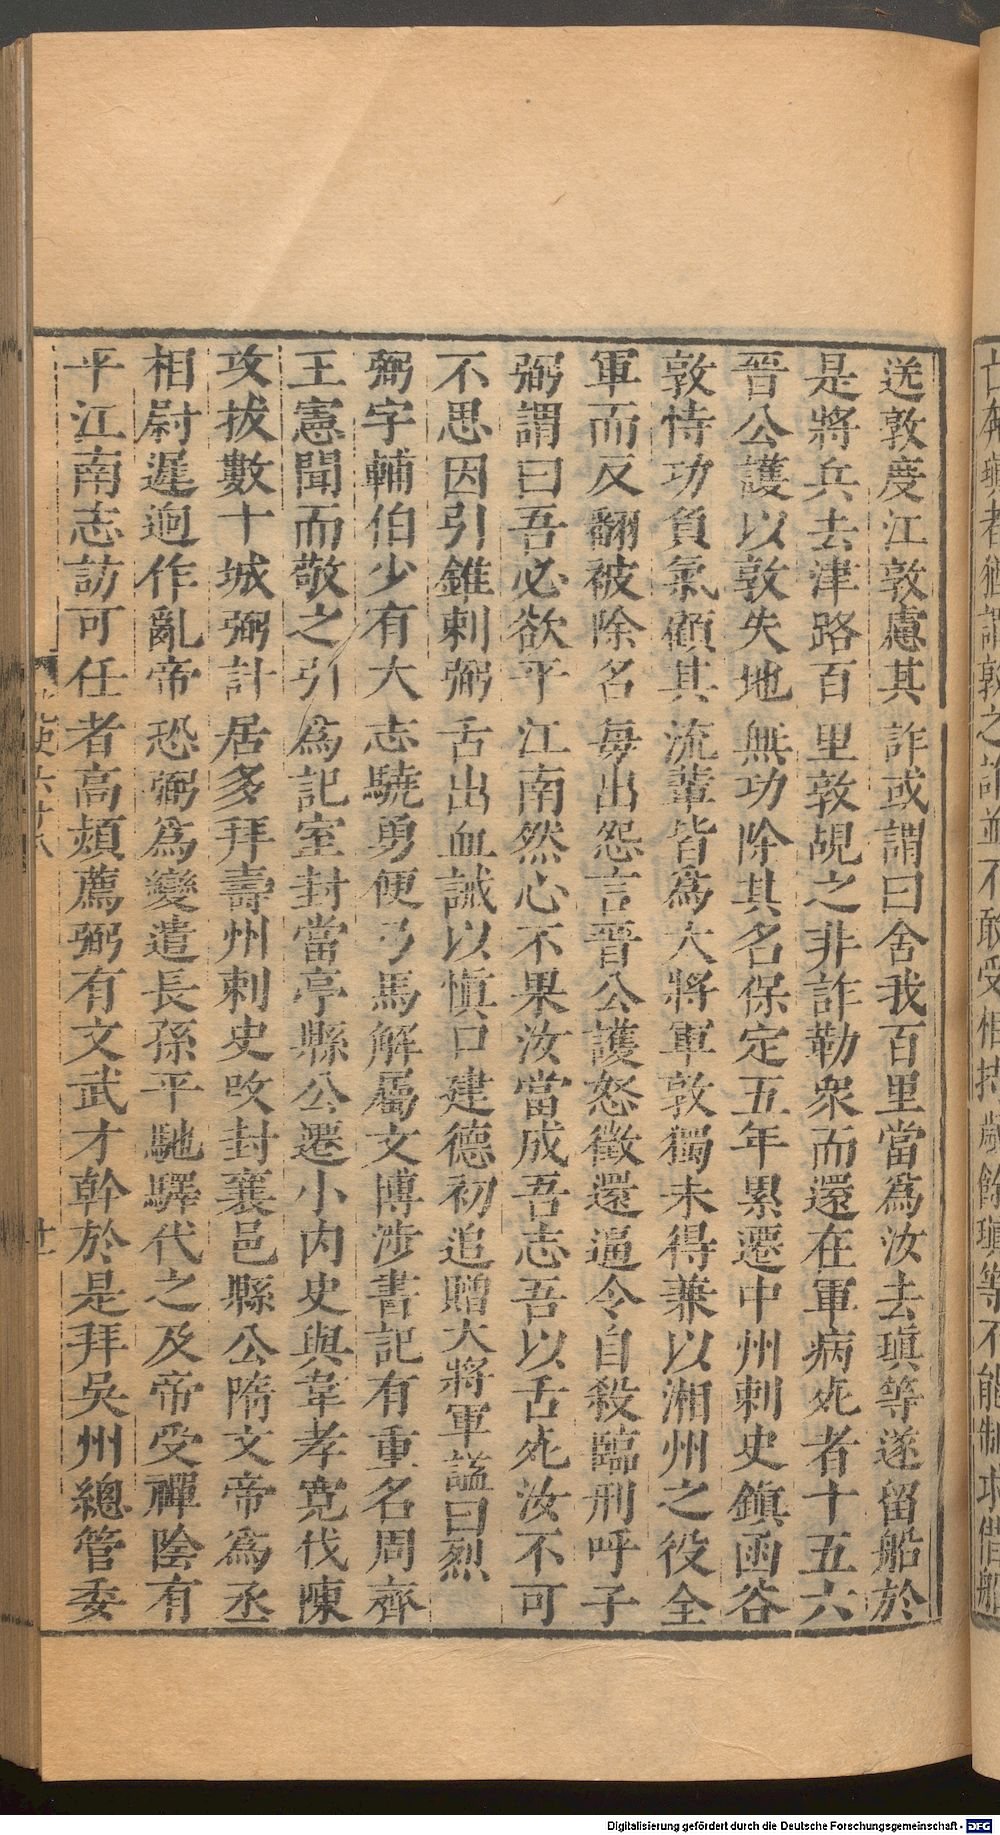 送敦度江敦慮其詐或謂曰舍我百里當爲汝去瑱等遂留船於
是將兵去津路百里敦覘之非詐勒衆而還在軍病死者十五六
晉公護以敦失地無功除其名保定五年累遷中州刺史鎮函谷
敦恃功負氣顧其流輩皆爲大將軍敦獨未得兼以湘州之役全
軍而反翻被除名每出怨言晉公護怒徵還逼令自殺臨刑呼子
弼謂曰吾必欲平江南然心不果汝當成吾志吾以舌死汝不可
不思因引錐刺弼舌出血誡以慎口建德初追贈大將軍謚曰烈
弼字輔伯少有大志驍勇便弓馬解屬文博涉書記有重名周齊
王憲聞而敬之引爲記室封當亭縣公遷小內史與韋孝寬伐陳
攻拔數十城弼計居多拜壽州刺史改封襄邑縣公隋文帝爲丞
相尉遲迥作亂帝恐弼爲變遣長孫平馳驛代之及帝受禪陰有
平江南志訪可任者高熲薦弼有文武才幹於是拜吳州總管委
史六十八
十一
Digitalisierung gefördert durch die Deutsche Forschungsgemeinschaft - DFG